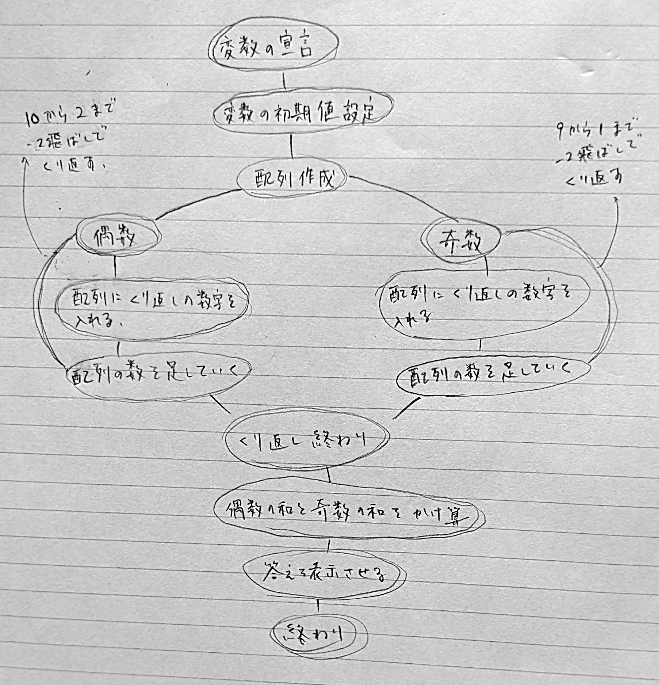 変数の宣言
変数の初期値設定
10から2まで
-2飛ばしで
くり返す.
9から1まで
-2飛ばしで
くり返す
配列作成
偶数
奇数
配列にくり返しの数字を
入れる.
配列にくり返しの数字を
入れる
配列の数を足していく
配列の数を足していく
くり返し終わり
偶数の和と奇数の和をかけ算
答えを表示させる
終わり